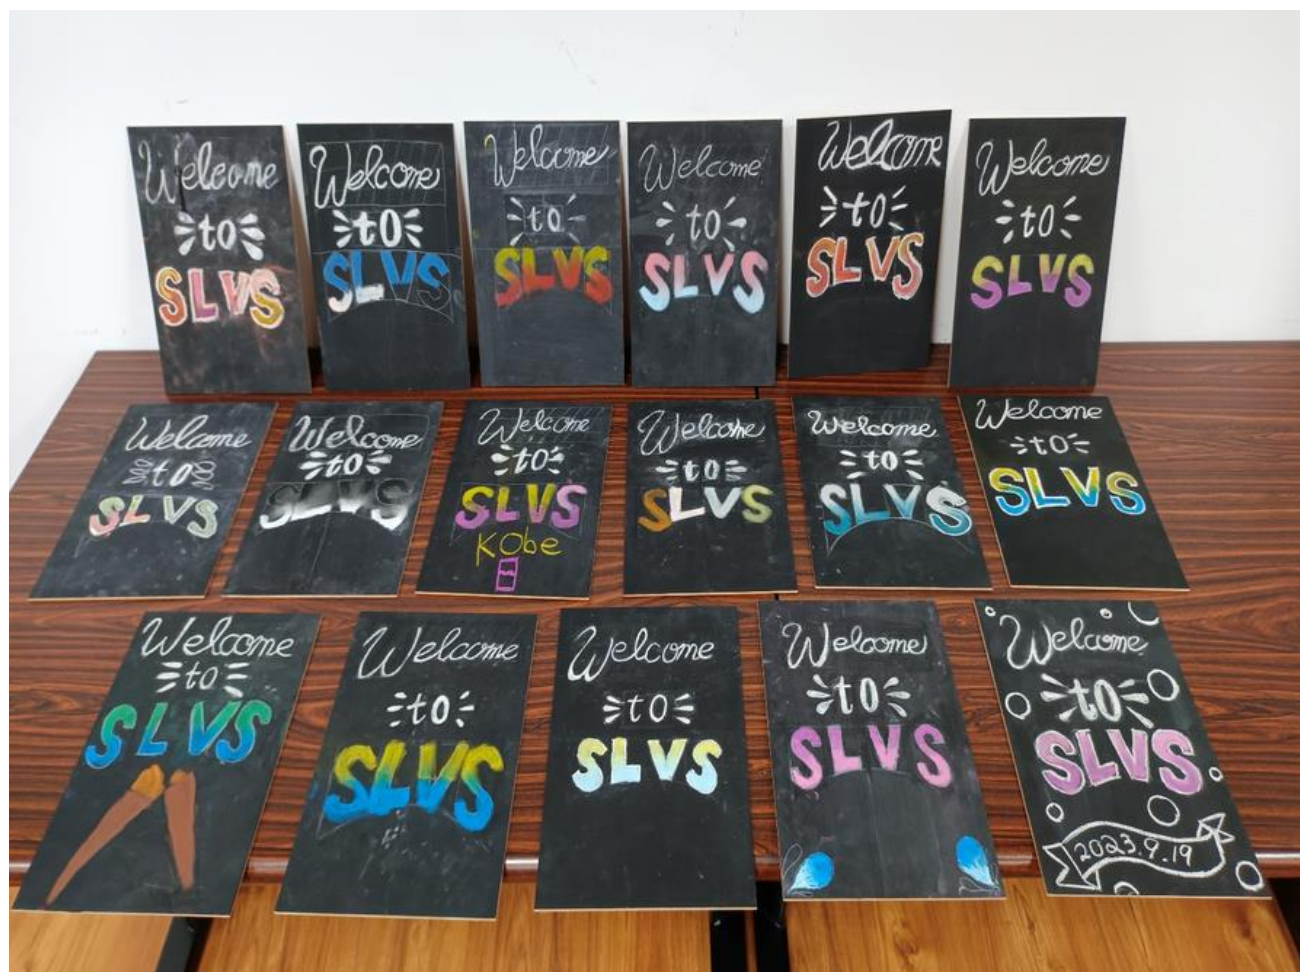 Welcome
to
SLVS
Welcome
to
SLVS
Welcome
to
SLVS
Welcome
to
SLVS
Welcome
to
SLVS
Welcome
to
SLVS
Welcome
to
SLVS
Welcome
to
SLVS
Welcome
to
SLVS
KObe
Welcome
to
SLVS
Welcome
to
SLVS
Welcome
to
SLVS
Welcome
to
SLVS
Welcome
to
SLVS
Welcome
to
SLVS
Welcome
to
SLVS
Welcome
to
SLVS
2023.9.19